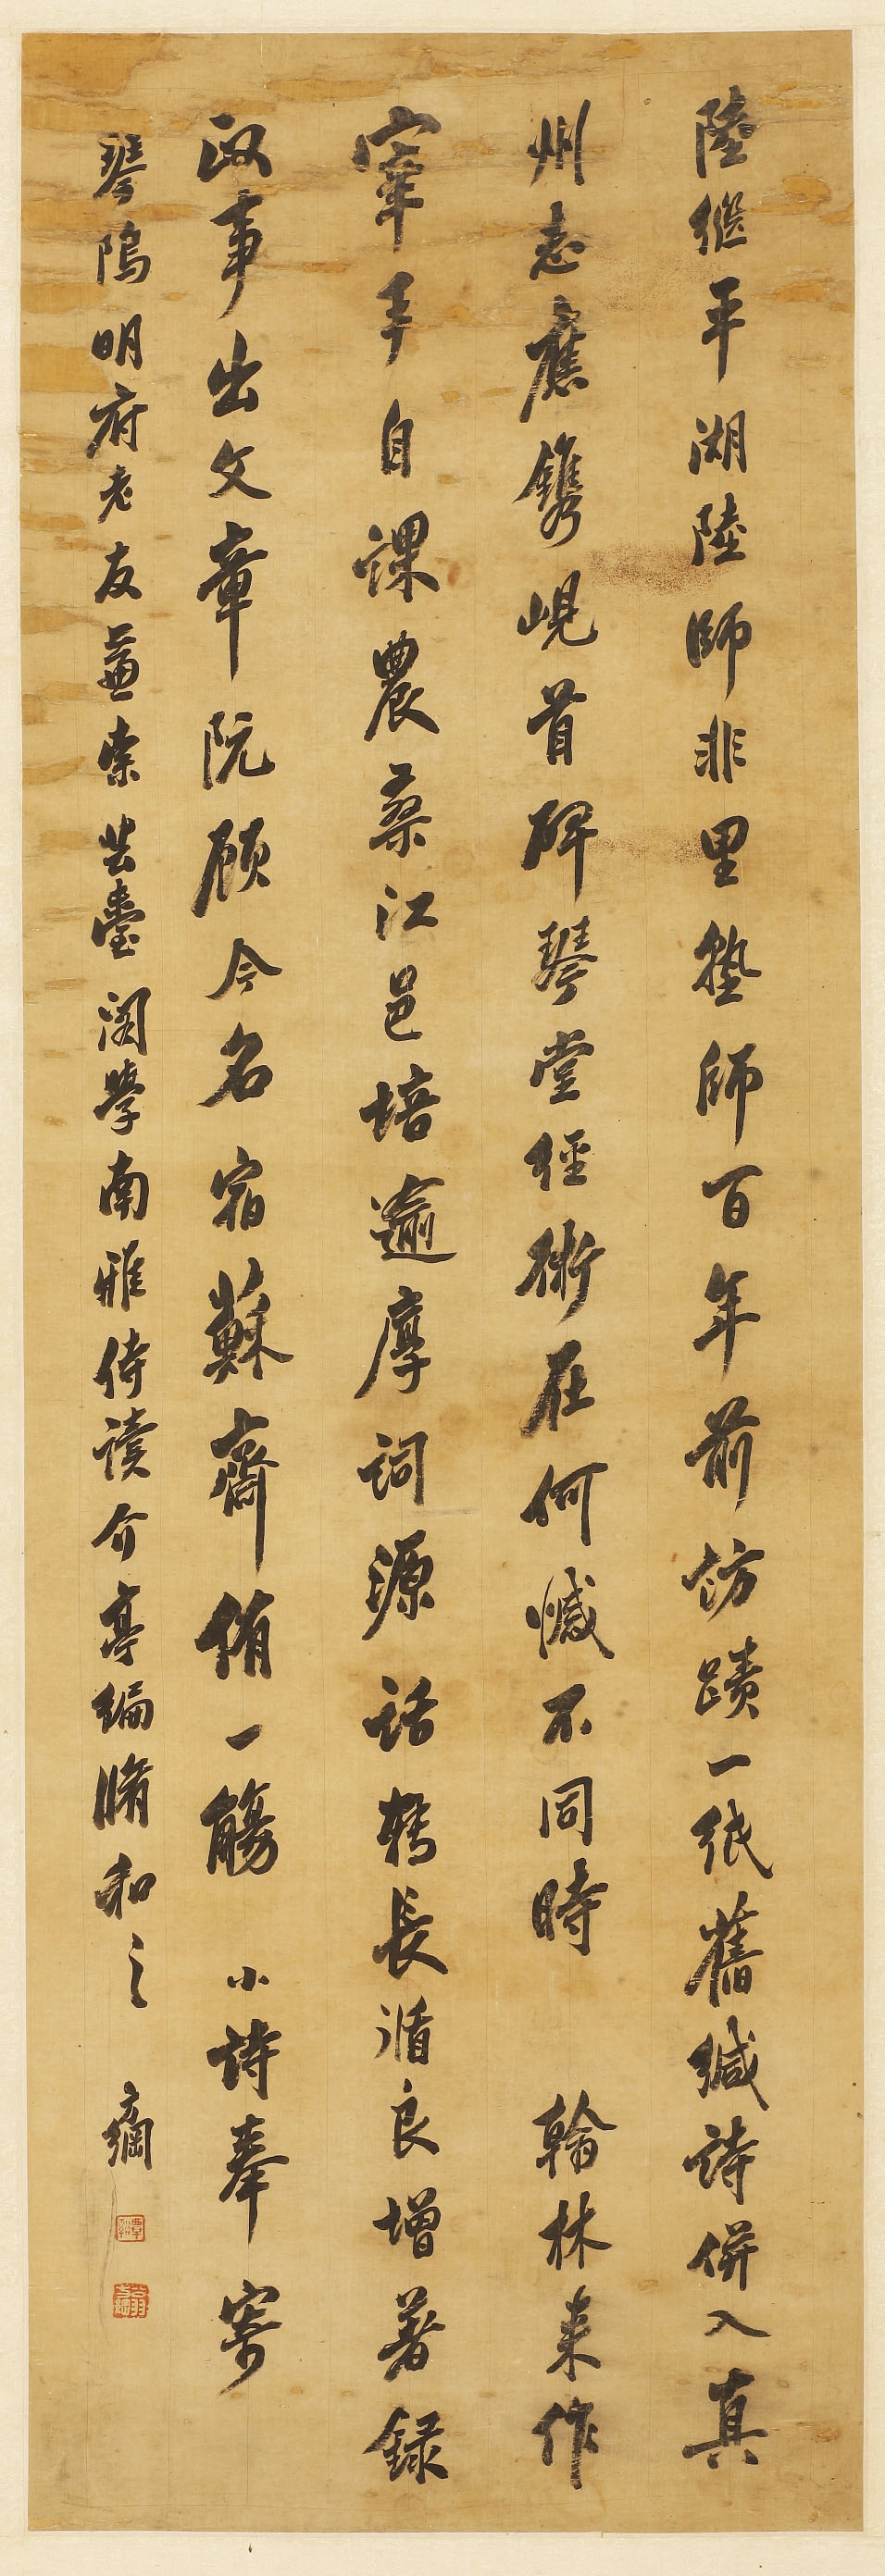 陸繼平湖陸師非里塾師百年前訪蹟一紙舊緘詩併入真
州志應鐫峴首碑琴堂經術在何憾不同時 翰林来作
宰手自課農桑江邑培逾厚詞源話轉長循良增著錄
政事出文章阮顧今名宿蘇齋侑一觴 小詩奉寄
琴隖明府老友兼索芸臺閣學南雅侍讀介亭編脩和之 方綱
覃谿
翁方綱